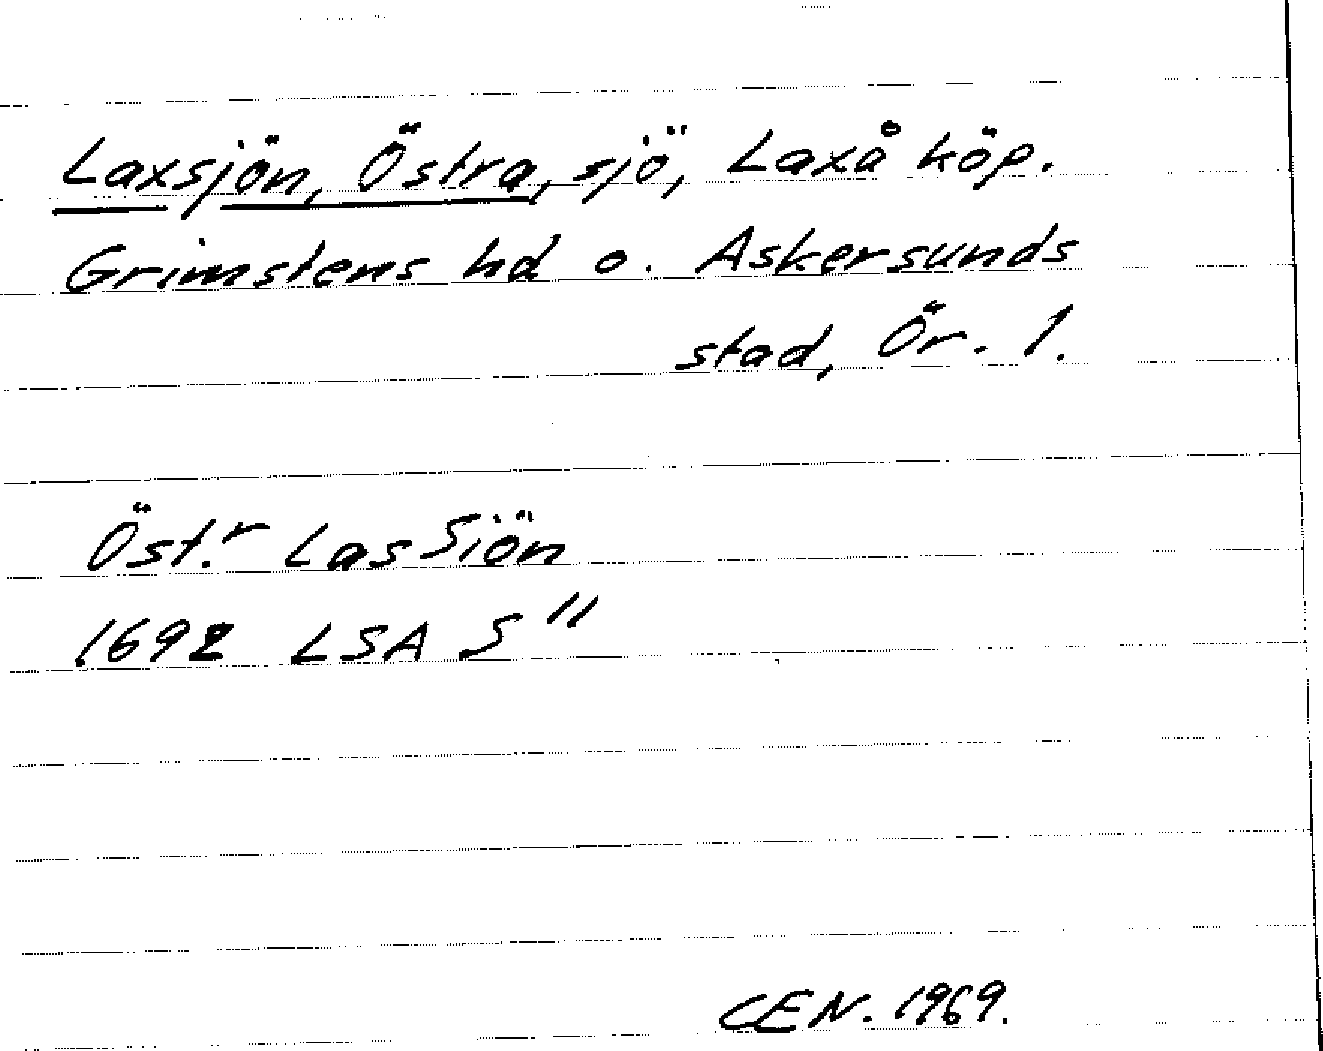 Laxsjön, Östra, sjö, Laxå köp.
Grimstens hd o. Askersunds
stad, Ör. l.
Öst.r Las Siön
1692 LSA S11
CEN. 1969.